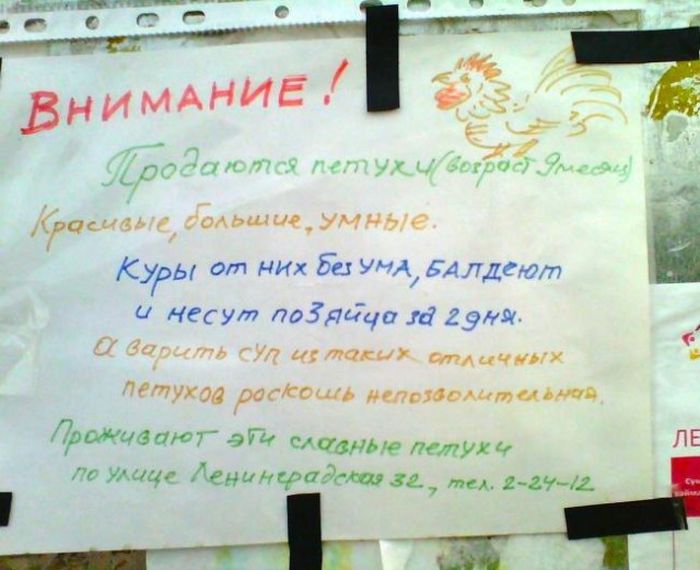 ВНИМАНИЕ!
Продаются петухи (возраст 9 месяц)
Красивые, большие, умные.
Куры от них без ума, БАЛДЕЮТ
и несут по 3 яйца за 2 дня.
А варить суп из таких отличных
петухов роскошь непозволительная.
Проживают эти славные петухи
по улице Ленинградская 32, тел. 2-24-12
ЛЕ